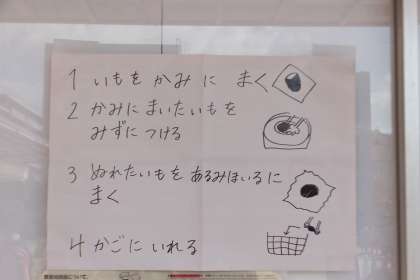 1 いもを かみ に まく
2 かみに まいたいもを
みずに つける
3 ぬれたいもを あるみほいるに
まく
4 かごに いれる